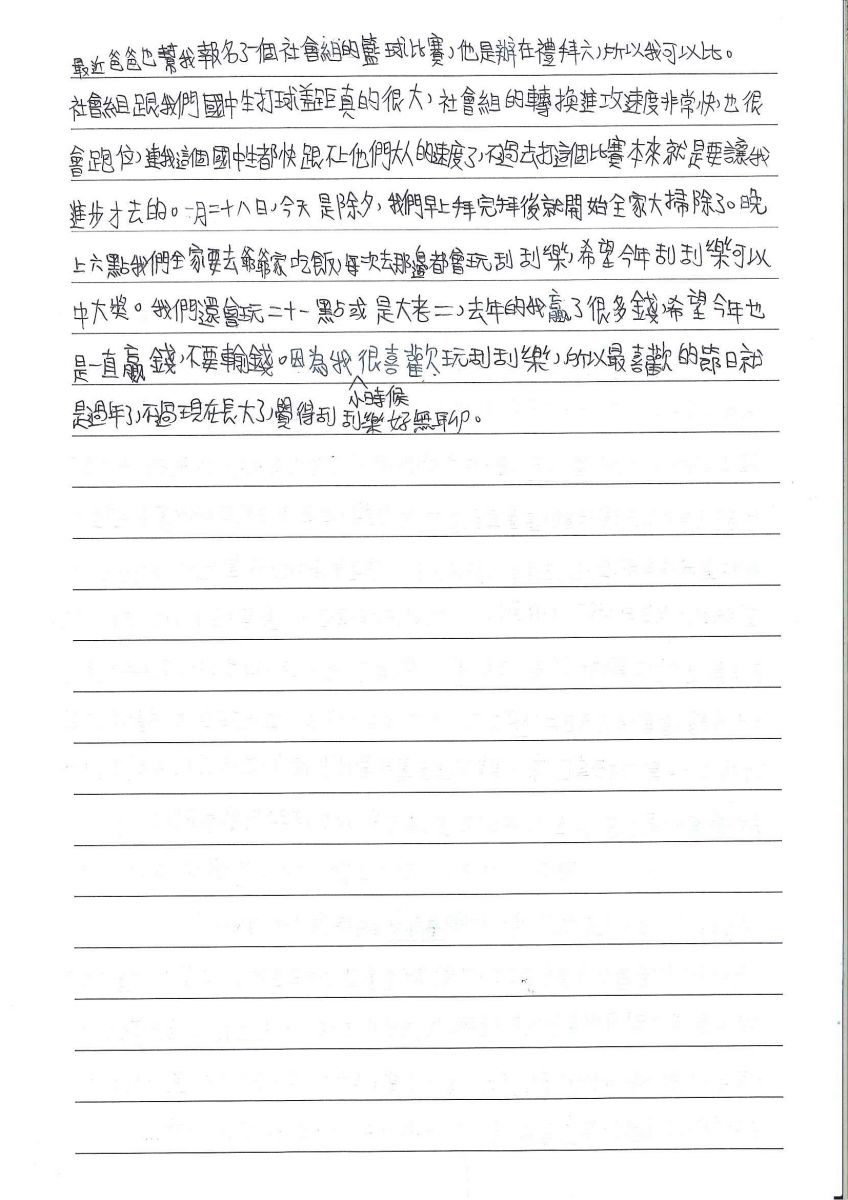 最近爸爸也幫我報名了一個社會組的籃球比賽,他是辦在禮拜六,所以我可以比。
社會組跟我們國中生打球差距真的很大,社會組的轉換進攻速度非常快,也很
會跑位,連我這個國中生都快跟不上他們大人的速度了,不過去打這個比賽本來就是要讓我
進步才去的。一月二十八日,今天是除夕,我們早上拜完拜後就開始全家大掃除了。晚
上六點我們全家要去爺爺家吃飯,每次去那邊都會玩刮刮樂,希望今年刮刮樂可以
中大獎。我們還會玩二十一點或是大老二,去年的我贏了很多錢,希望今年也
是一直贏錢,不要輸錢。因為我小時候很喜歡玩刮刮樂,所以最喜歡的節日就
是過年了,不過現在長大了,覺得刮刮樂好無聊。